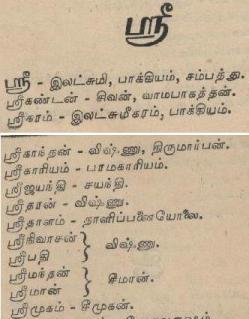 ஸ்ரீ
ஸ்ரீ - இலட்சுமி, பாக்கியம், சம்பத்து.
ஸ்ரீகண்டன் - சிவன், வாமபாகத்தன்.
ஸ்ரீகரம் - இலட்சுமீகரம், பாக்கியம்.
ஸ்ரீகாந்தன் - விஷ்ணு, திருமார்பன்.
ஸ்ரீகாரியம் - பாரமகாரியம்.
ஸ்ரீஜயந்தி - சயந்தி.
ஸ்ரீதரன் - விஷ்ணு.
ஸ்ரீதாளம் - நாளிப்பனையோலை.
ஸ்ரீநிவாசன் } விஷ்ணு.
ஸ்ரீபதி
ஸ்ரீமந்தன் } சீமான்.
ஸ்ரீமான்
ஸ்ரீமுகம் - சீமுகன்.